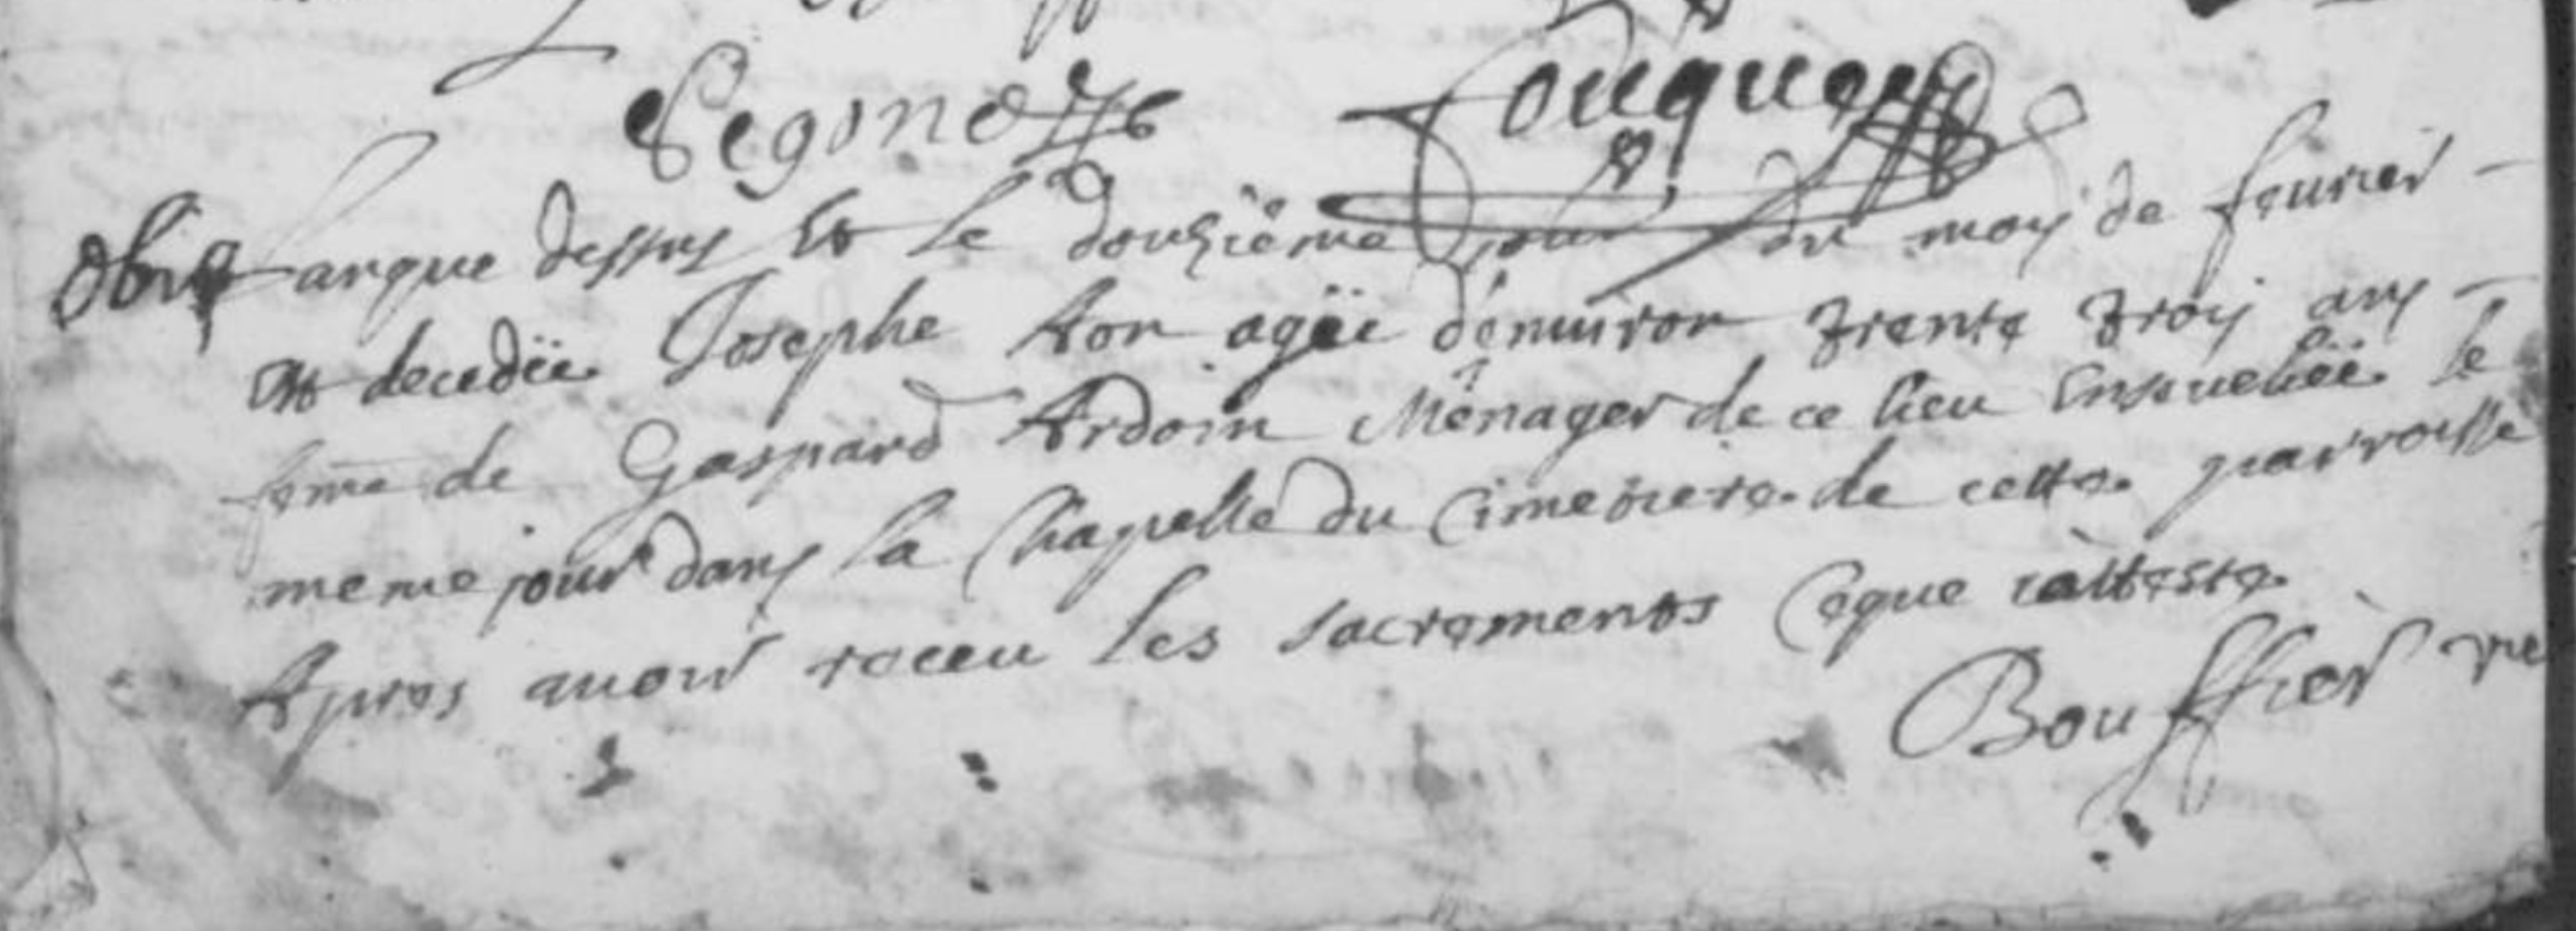 Segond
Fouque
obiit Lanque dessus et le douziême jour du moy de feurier
est decedëe Josephe Aon agëe d'enuiron trente troy ans
feme de Gaspard Ardoin Ménager de ce lieu Enseueliëe le
meme jour dans la Chapelle du Cimetiere de cette parroisse
Apres auoir receu les sacrements ceque i'atteste
Bouffier